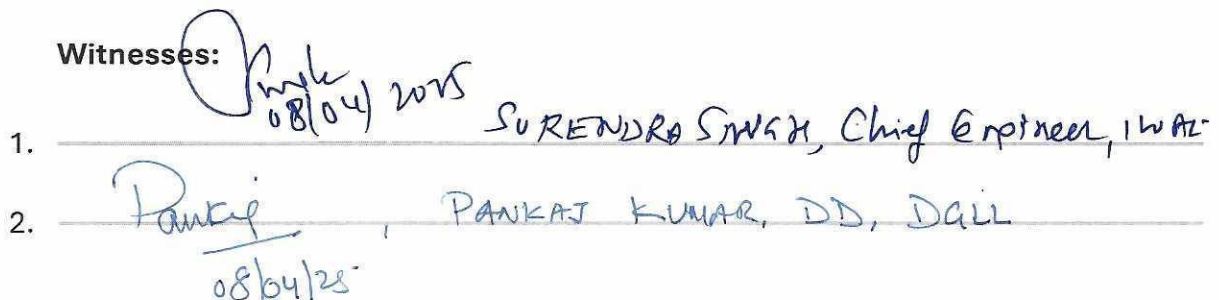 Witnesses:
08/04/2025
1. SURENDRA SINGH, Chief Engineer, IWAI
2. Pankaj, PANKAJ KUMAR, DD, DGLL
08/04/25